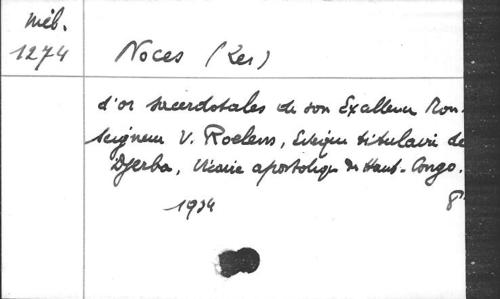 Méb.
1274
Noces (Les)
d'or sacerdotales de son Excellence Mon-
seigneur V. Roelens, Evêque titulaire de
Djerba, Vicaire apostolique du Haut-Congo.
1934
8°